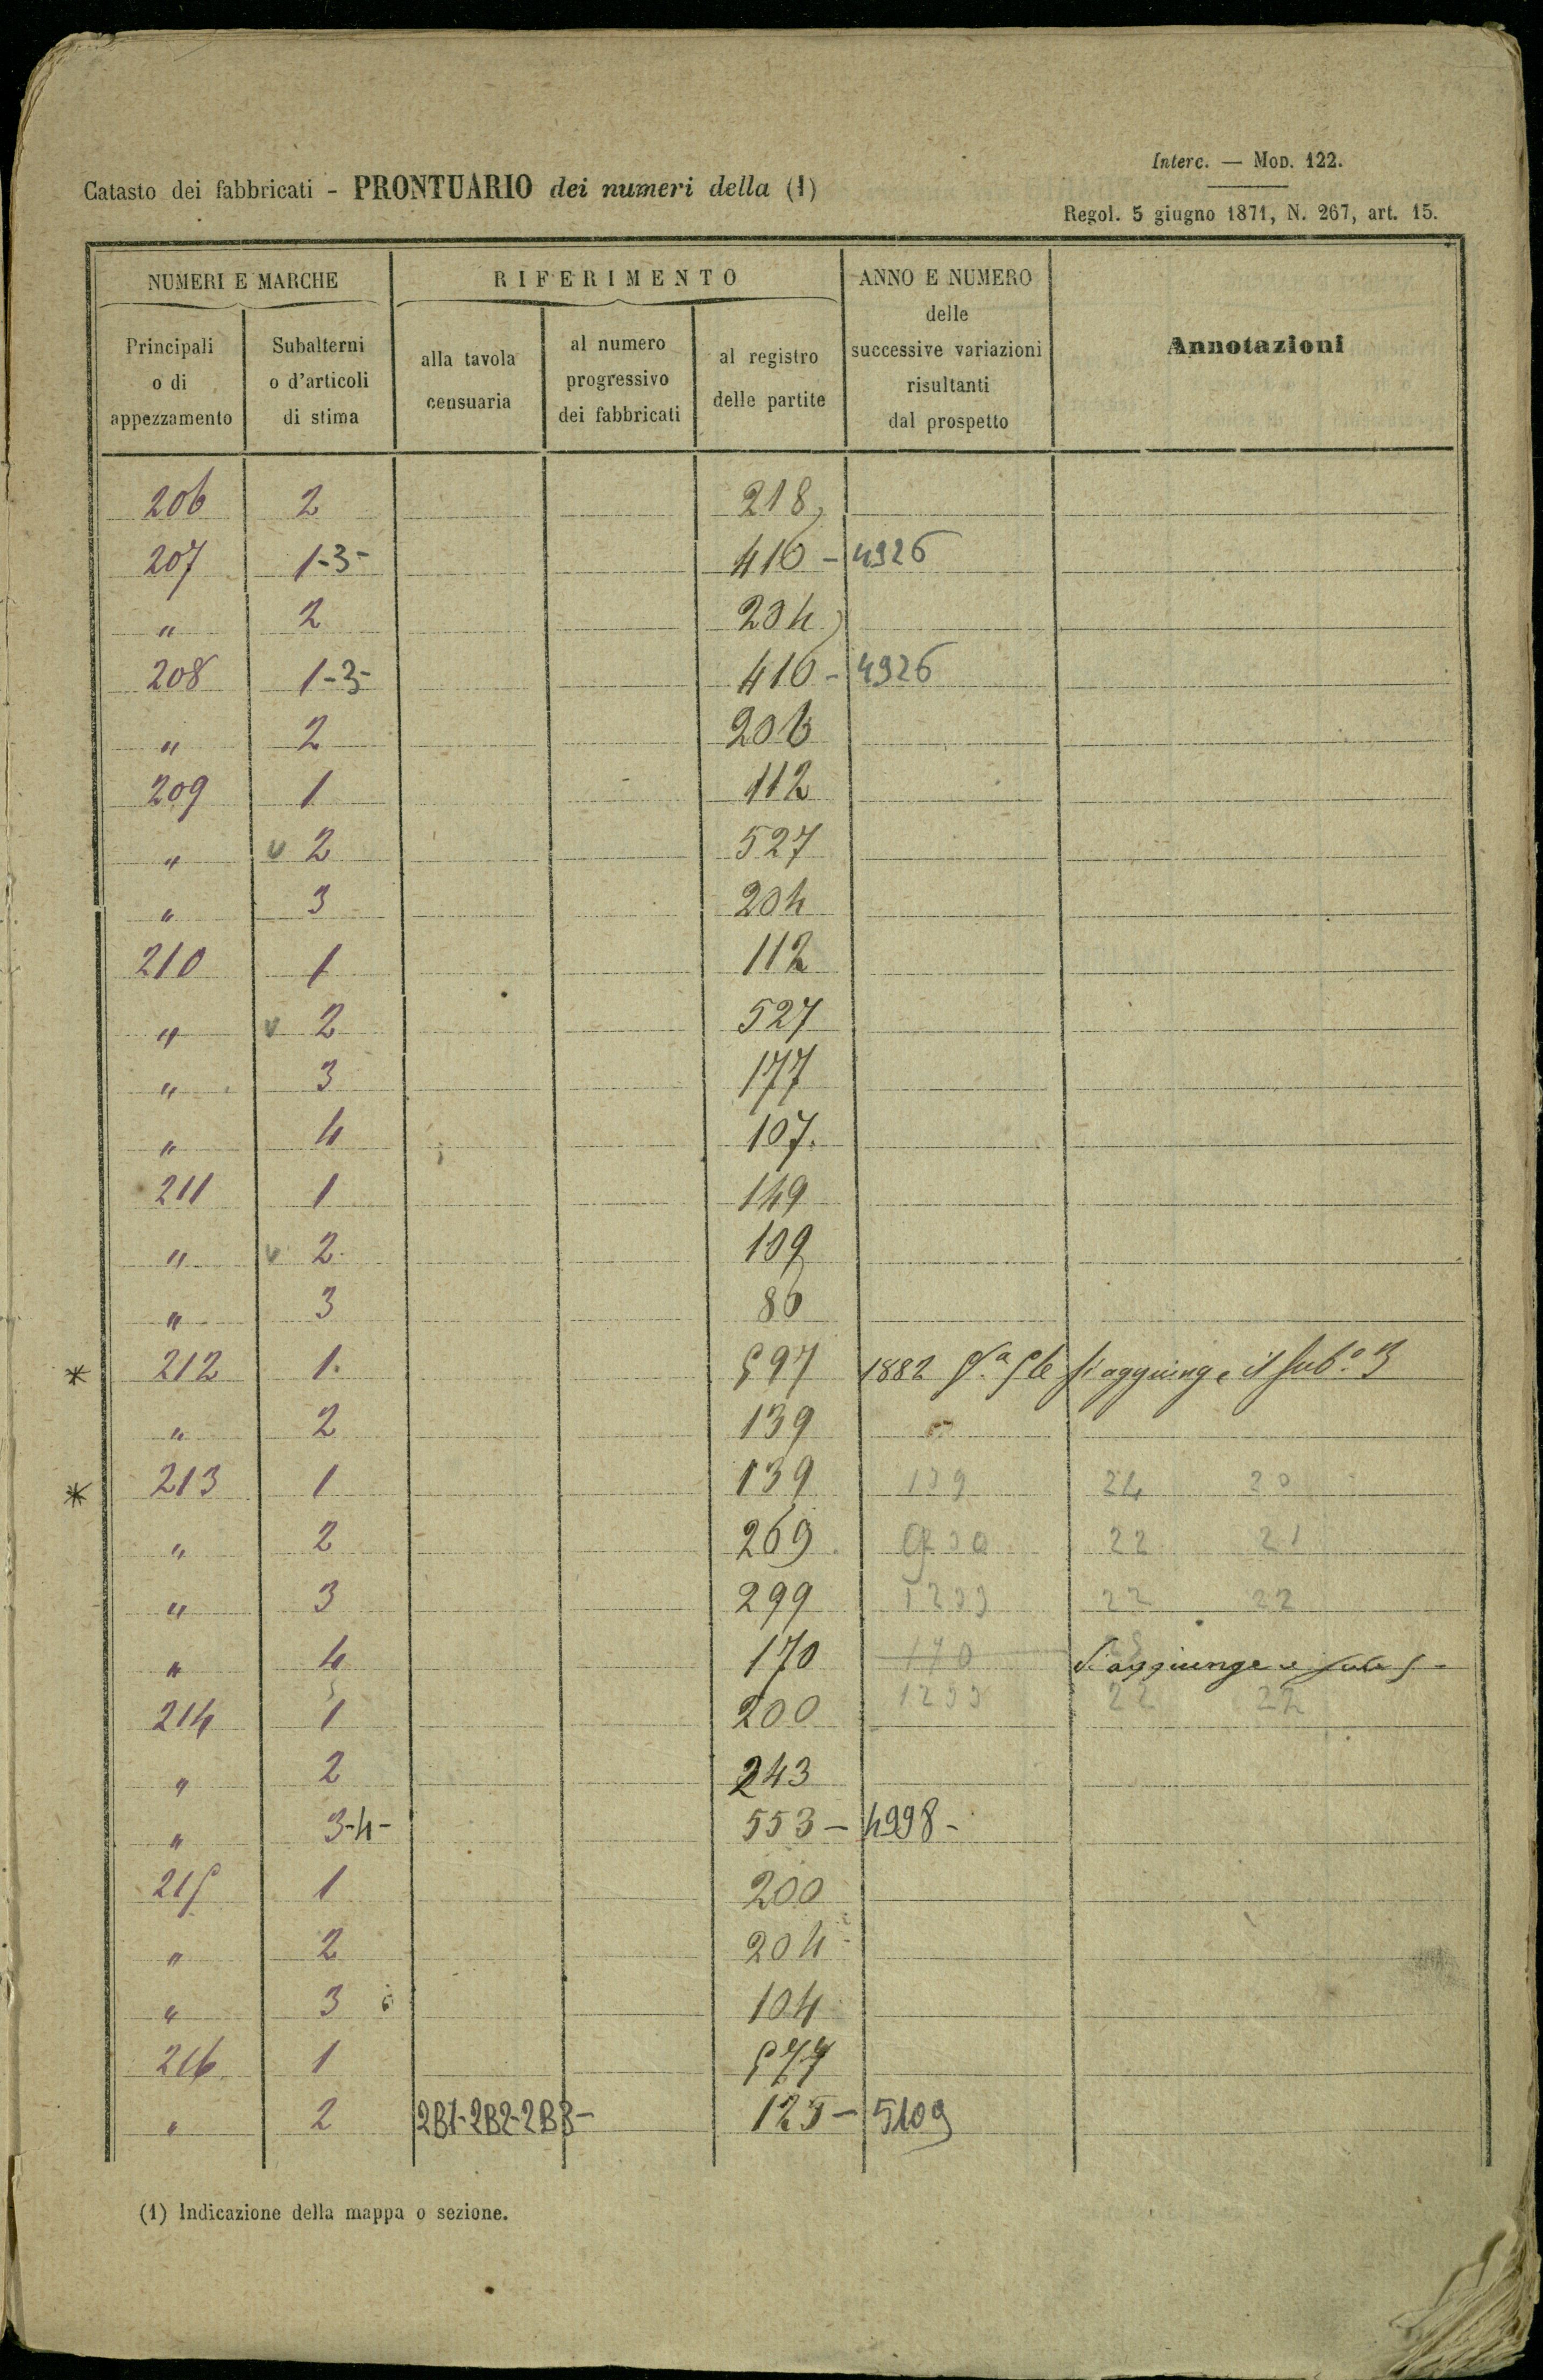 Interc. — Mod. 122.
Catasto dei fabbricati - PRONTUARIO dei numeri della (1)
Regol. 5 giugno 1871, N. 267, art. 15.
NUMERI E MARCHE RIFERIMENTO ANNO E NUMERO delle successive variazioni risultanti dal prospetto Annotazioni
Principali o di appezzamento Subalterni o d'articoli di stima alla tavola censuaria al numero progressivo dei fabbricati al registro delle partite
206 2 218
207 1-3- 416 - 4926
" 2 204
208 1-3- 416 - 4926
" 2 206
209 1 112
" v 2 527
" 3 204
210 1 112
" v 2 527
" 3 177
" 4 107.
211 1 149
" v 2 109
" 3 86
* 212 1. 597 1882 si aggiunge il Sub.º 3
" 2 139
* 213 1 139 139 24 20
" 2 269 22 21
" 3 299 1299 22 22
" 4 170 170 Si aggiunge
214 1 200 1299 22 22
" 2 243
" 3-4- 553 - 4998 -
215 1 200
" 2 204
" 3 104
216 1 577
" 2 2B1-2B2-2B3- 125 - 5109
(1) Indicazione della mappa o sezione.